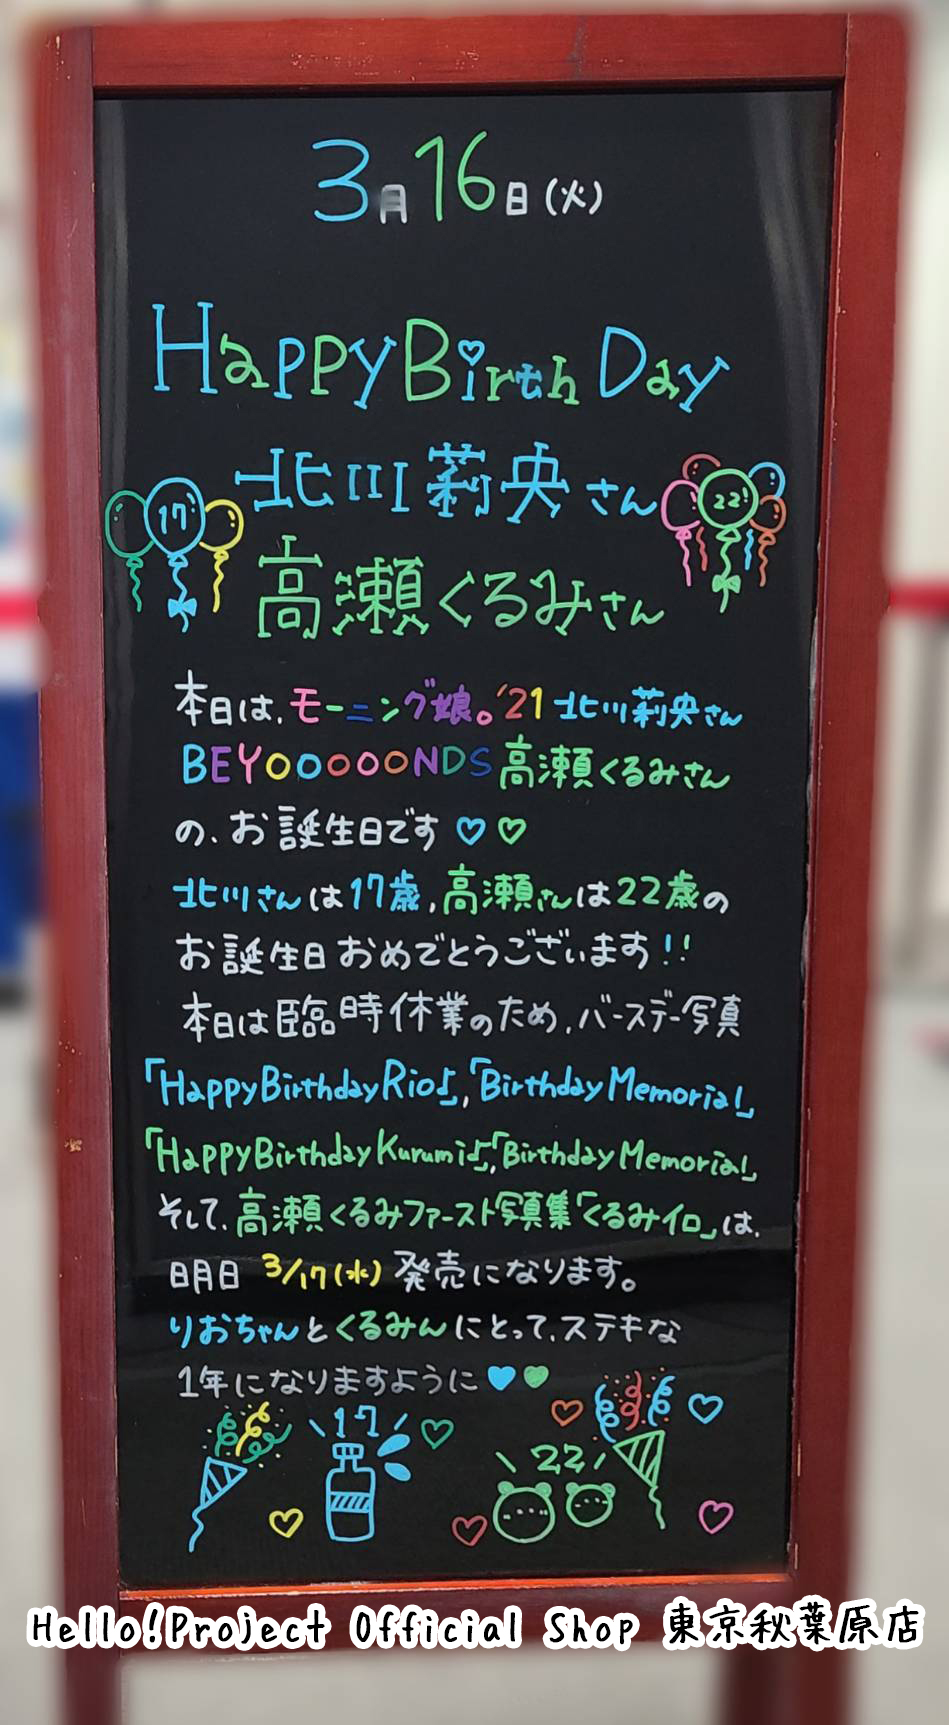 3月16日(火)
Happy Birth Day
北川莉央さん
17
22!
高瀬くるみさん
本日は、モーニング娘。'21 北川莉央さん
BEYOOOOONDS 高瀬くるみさん
の、お誕生日です♡♡
北川さんは17歳，高瀬さんは22歳の
お誕生日おめでとうございます!!
本日は臨時休業のため、バースデー写真
「Happy Birthday Rio♪」,「Birthday Memorial」
「Happy Birthday Kurumi♪」,「Birthday Memorial」
そして、高瀬くるみファースト写真集「くるみイロ」は、
明日 3/17(水) 発売になります。
りおちゃんとくるみんにとって、ステキな
1年になりますように♥♥
17
22
Hello!Project Official Shop 東京秋葉原店